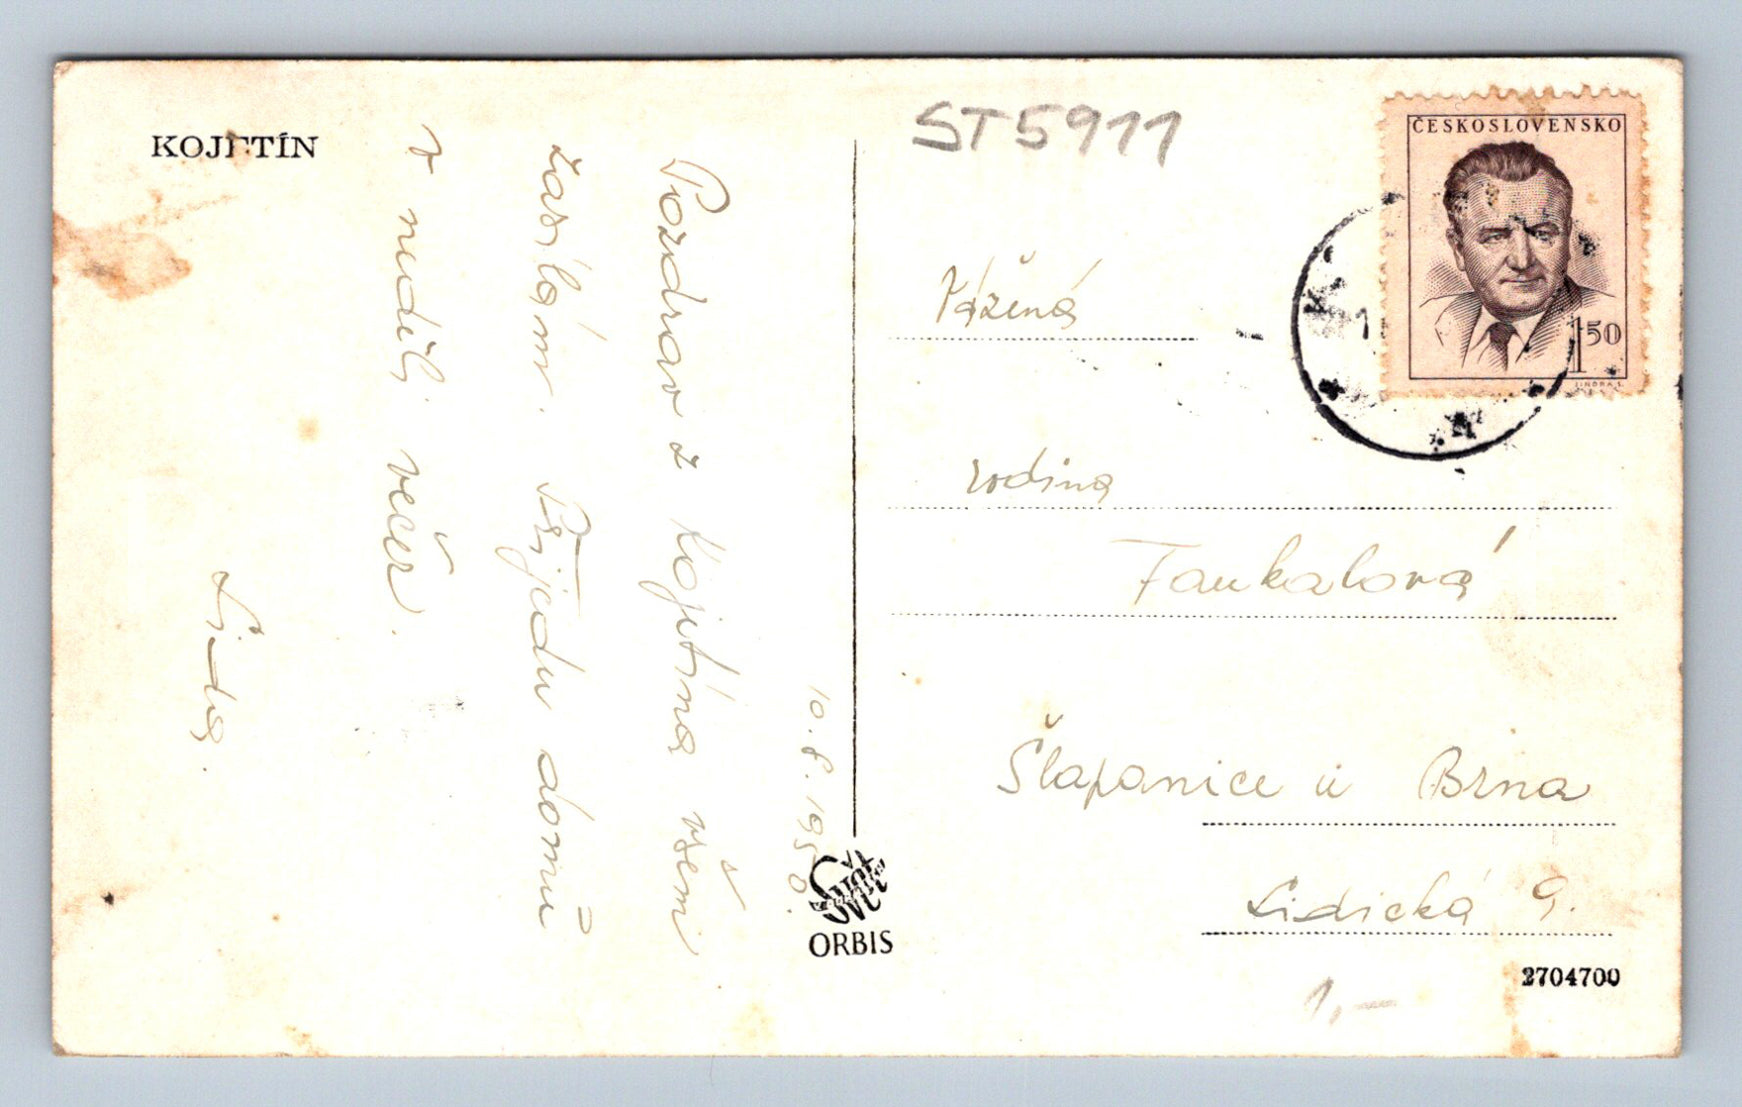 KOJETÍN
10.8.1950.
Pozdrav z Kojetína všem
zasílám. Přijedu domů
v neděli večer.
Lida.
ST5911
ČESKOSLOVENSKO
1 50
Vážená
rodina
Faukalová
Šlapanice u Brna
Lidická 9.
ORBIS
2704700
1,-